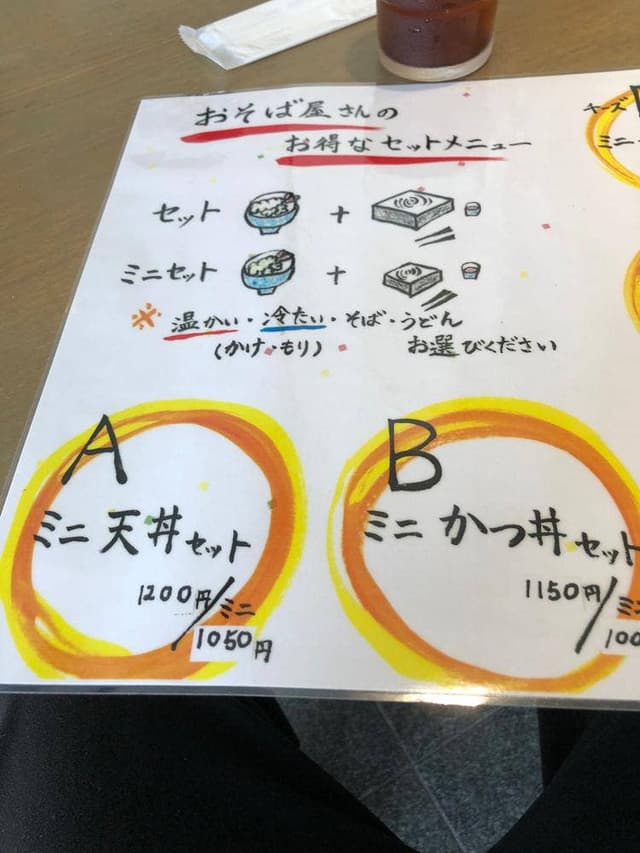 おそば屋さんの
お得なセットメニュー
セット
+
ミニセット
+
※ 温かい・冷たい・そば・うどん
(かけ・もり) お選びください
チーズ
ミニ
A
ミニ天丼セット
1200円/ミニ
1050円
B
ミニかつ丼セット
1150円/ミニ
100